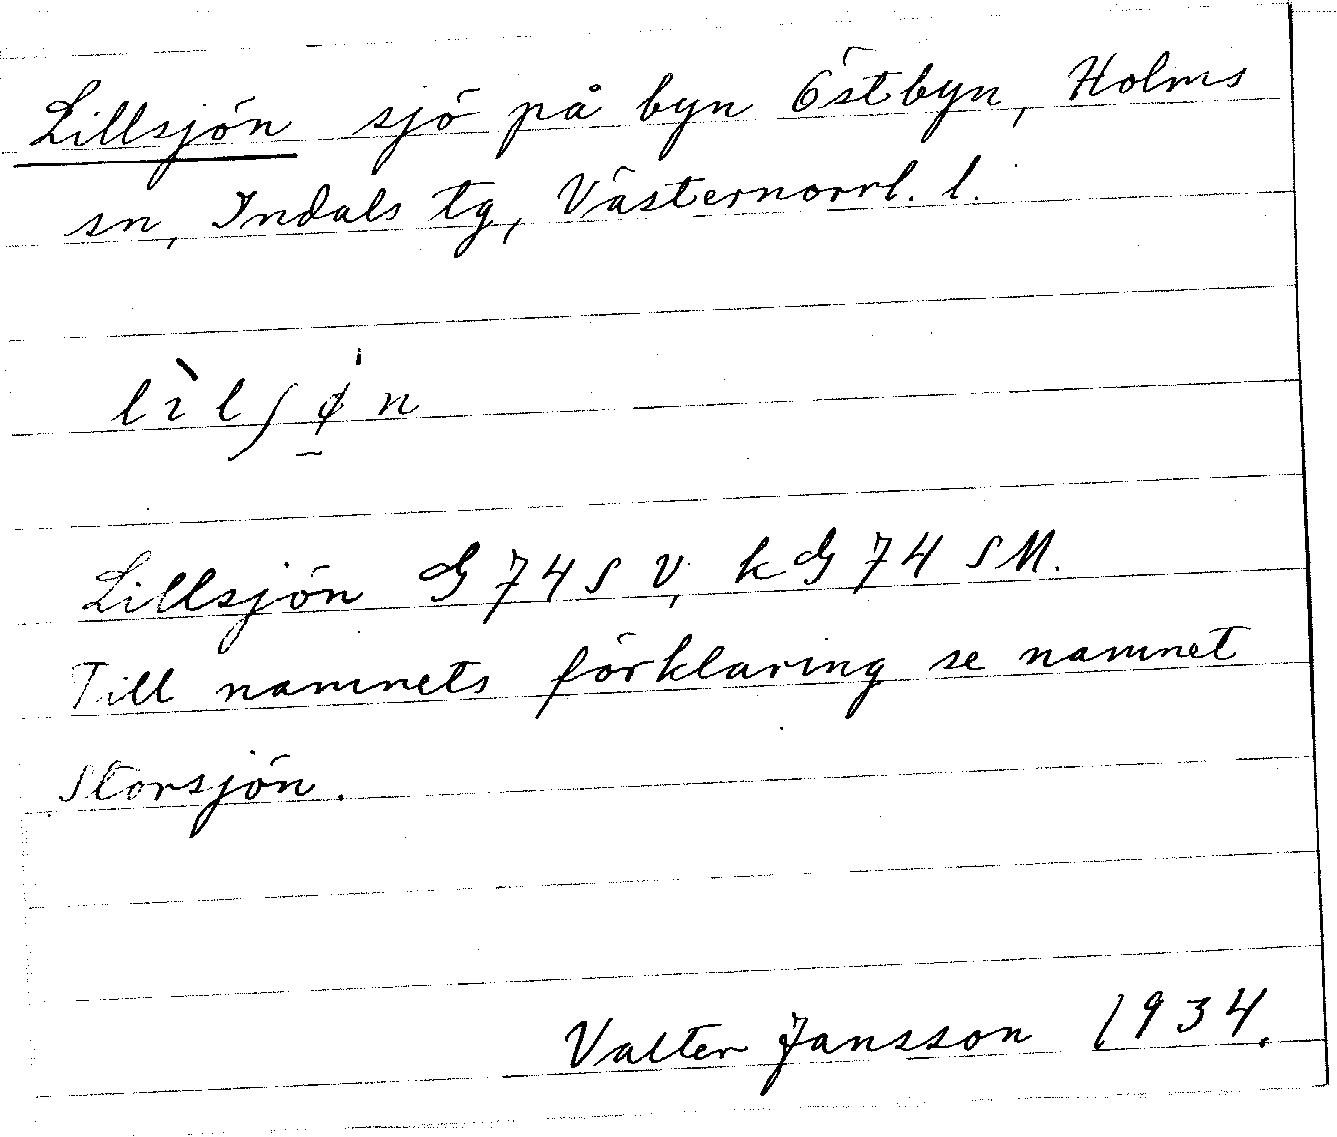 Lillsjön sjö på byn Östbyn, Holms
sn, Indals tg, Västernorrl. l.
lìlʃø̠̍n
Lillsjön G 74 S V, k G 74 S M.
Till namnets förklaring se namnet
Storsjön.
Valter Jansson 1934.